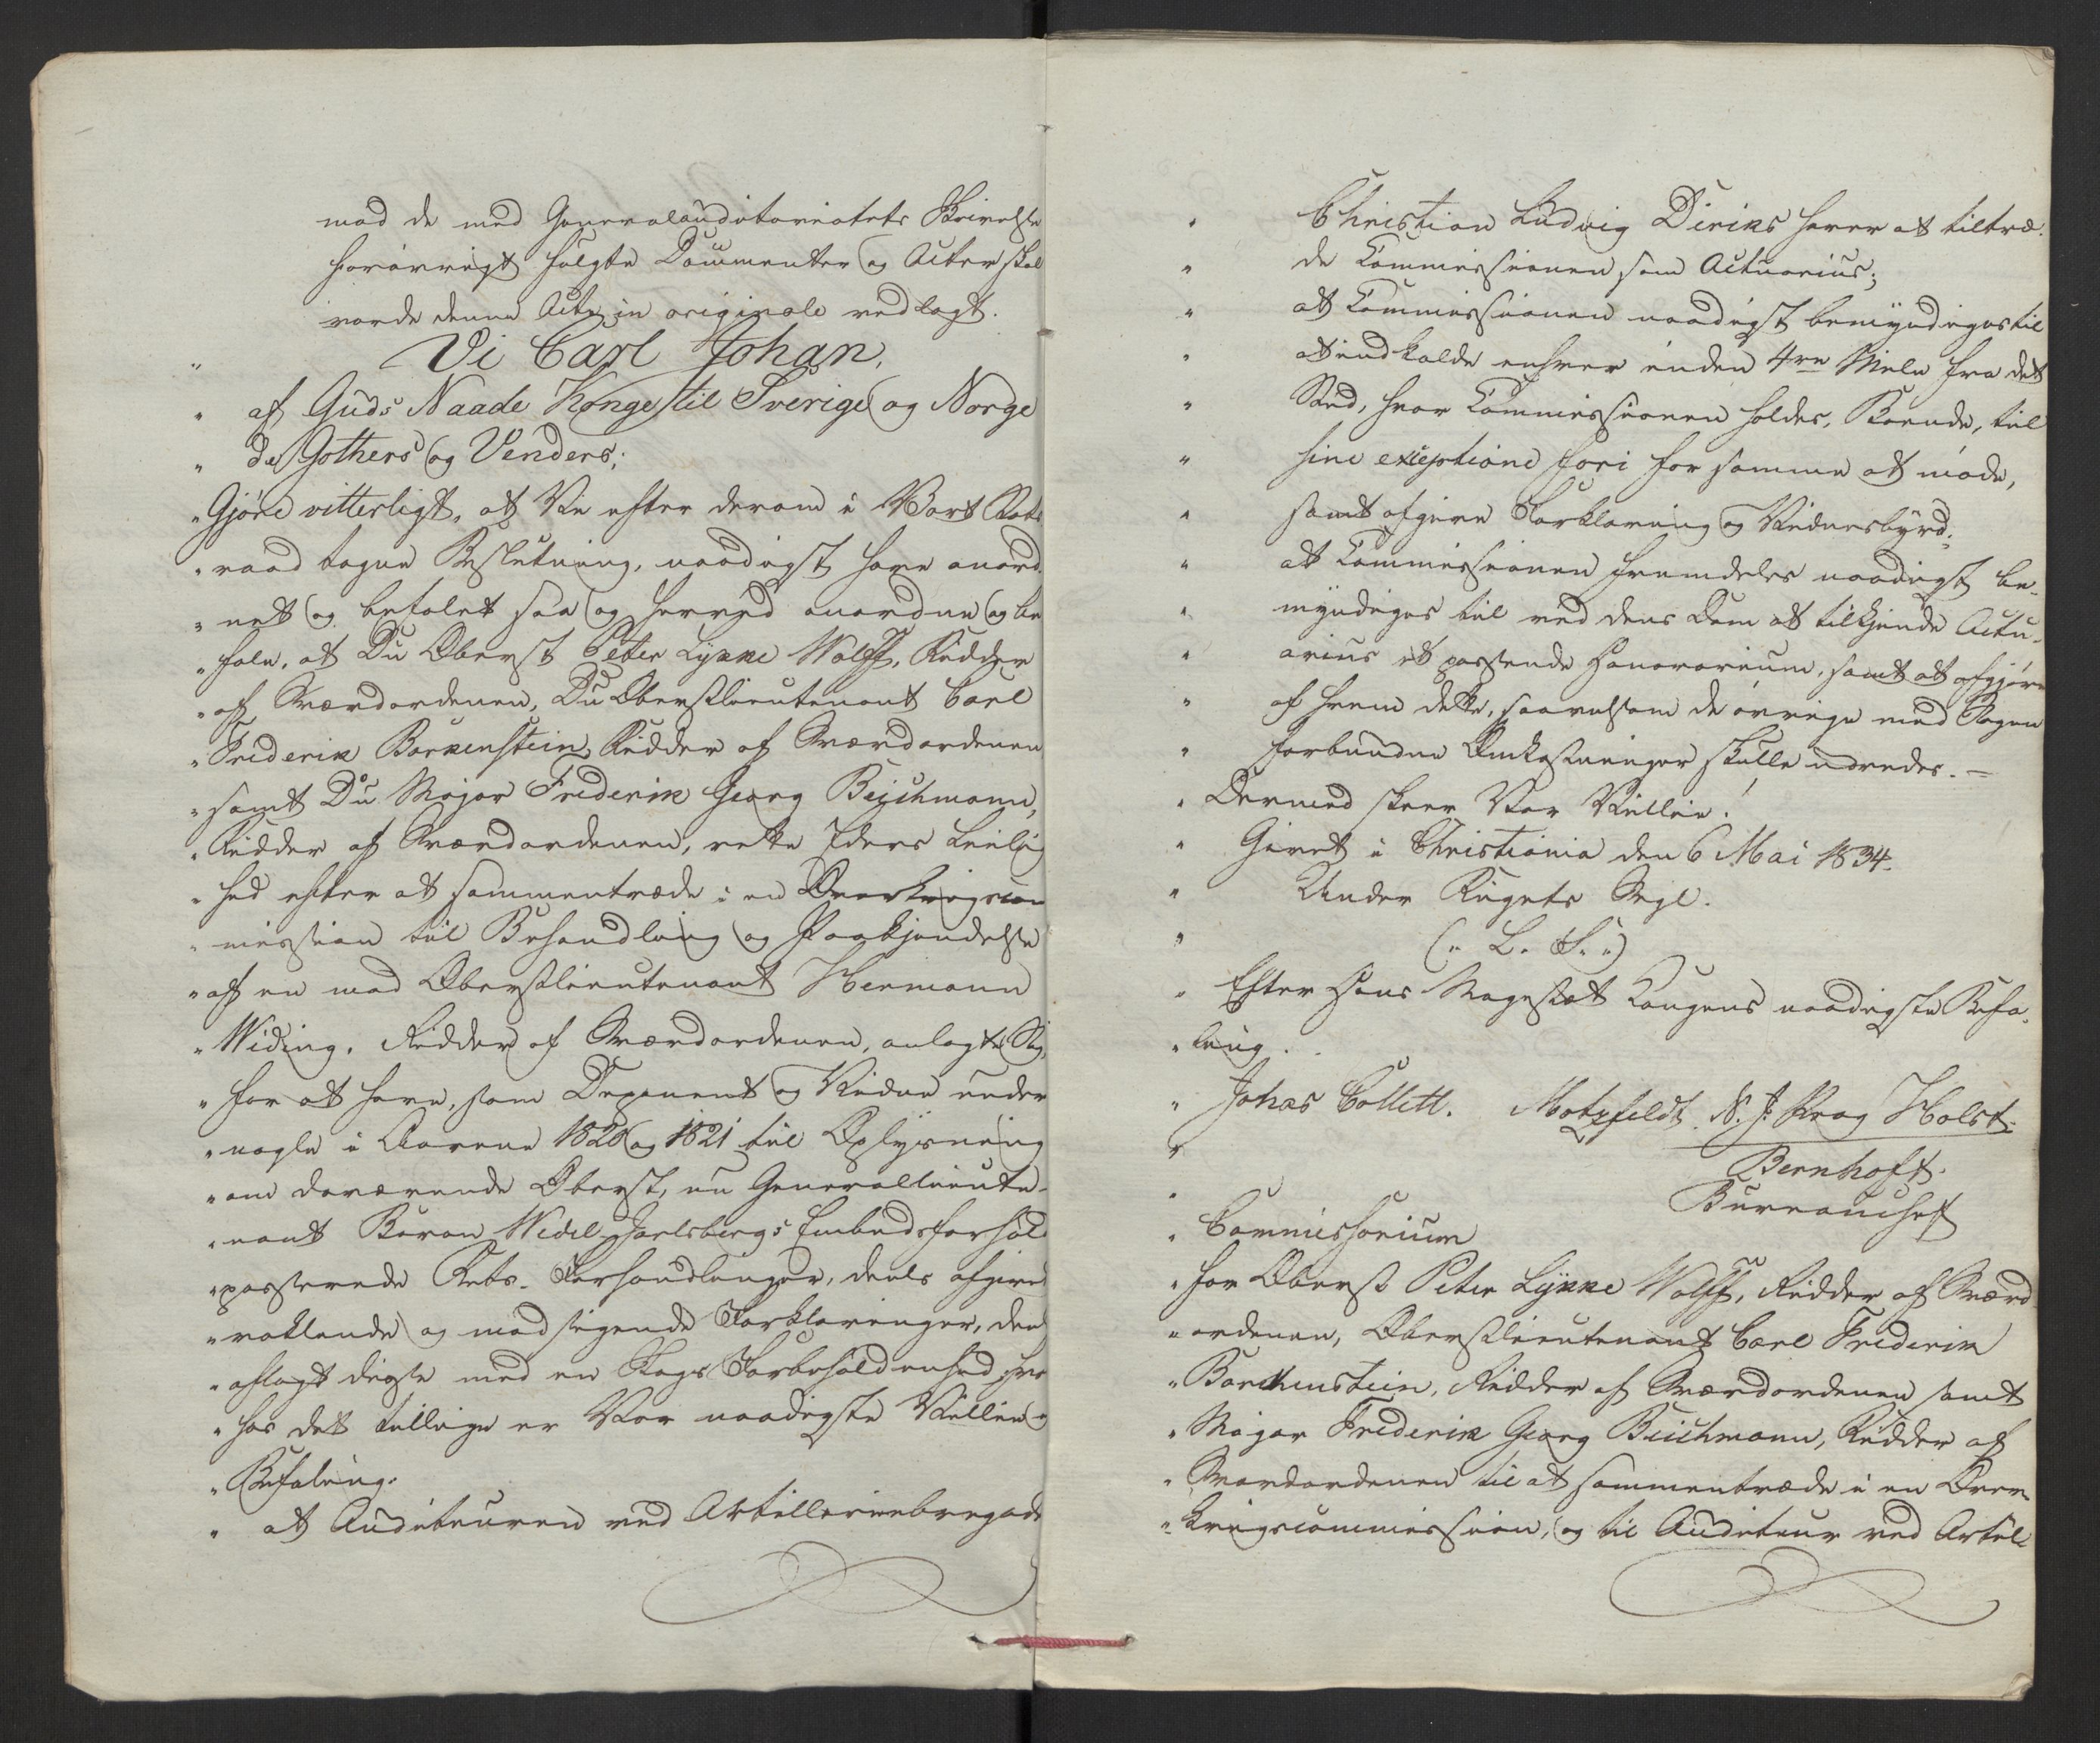 mod de med Generalauditoriatets Skrivelse
forøvrigt fulgte Documenter og Acter skal
vorde denne Act in originale vedlagt.
" Vi Carl Johan,
" af Guds Naade Konge til Sverige og Norge
" de Gothers og Venders;
" Gjøre vitterligt, at Vi efter derom i Vort Stats
" raad tagne Beslutning, naadigst have anord
" net og befalet saa og herved anordne og be
" fale, at Du Oberst Peter Lykke Wolff, Ridder
" af Sværdordenen, Du Oberstlieutenant Carl
" Frederik Borkenstein, Ridder af Sværdordenen
" samt Du Major Frederik Georg Beichmann,
" Ridder af Sværdordenen, rette Eders Leilig
" hed efter at sammentræde i en Overkrigscom
" mission til Behandling og Paakjendelse
" af en mod Oberstlieutenant Hermann
" Widing, Ridder af Sværdordenen, anlagte Sag,
" for at have, som Deponent og Vidne under
" nogle i Aarene 1820 og 1821 til Oplysning
" om daværende Oberst, nu Generallieute-
" nant Baron Wedel-Jarlsbergs Embedsforhold
" passerede Rets-Forhandlinger, deels afgivet
" vaklende og modsigende Forklaringer, deels
" aflagt disse med en Slags Forbeholdenhed; hvor
" hos det tillige er Vor naadigste Villie og
" Befaling:
" at Auditeuren ved Artilleriebrigade
" Christian Ludvig Diriks haver at tiltræ-
" de Commissionen som Actuarius;
" at Commissionen naadigst bemyndiges til
" at indkalde enhver inden 4re Mile fra det
" Sted, hvor Commissionen holdes, Boende, til
" sine exceptione fori for samme at møde,
" samt afgive Forklaring og Vidnesbyrd;
" at Commissionen fremdeles naadigst be-
" myndiges til ved dens Dom at tilkjende Actu-
" arius et passende Honorarium, samt at afgjøre
" af hvem dette, saavelsom de øvrige med Sagen
" forbundne Omkostninger skulle udredes. —
" Dermed skeer Vor Villie!
" Givet i Christiania den 6 Mai 1834.
" Under Rigets Segl.
" (: L. S. :)
" Efter Hans Majestæt Kongens naadigste Befa-
" ling.
" Johas Collett. Motzfeldt. N. J. Krag Holst.
" Bernhoft.
" Bureauchef
" Commissorium
" for Oberst Peter Lykke Wolff, Ridder af Sværd
" ordenen, Oberstlieutenant Carl Frederik
" Borchenstein, Ridder af Sværdordenen samt
" Major Frederik Georg Beichmann, Ridder af
" Sværdordenen til at sammentræde i en Over-
" krigscommission, og til Auditeur ved Artil-